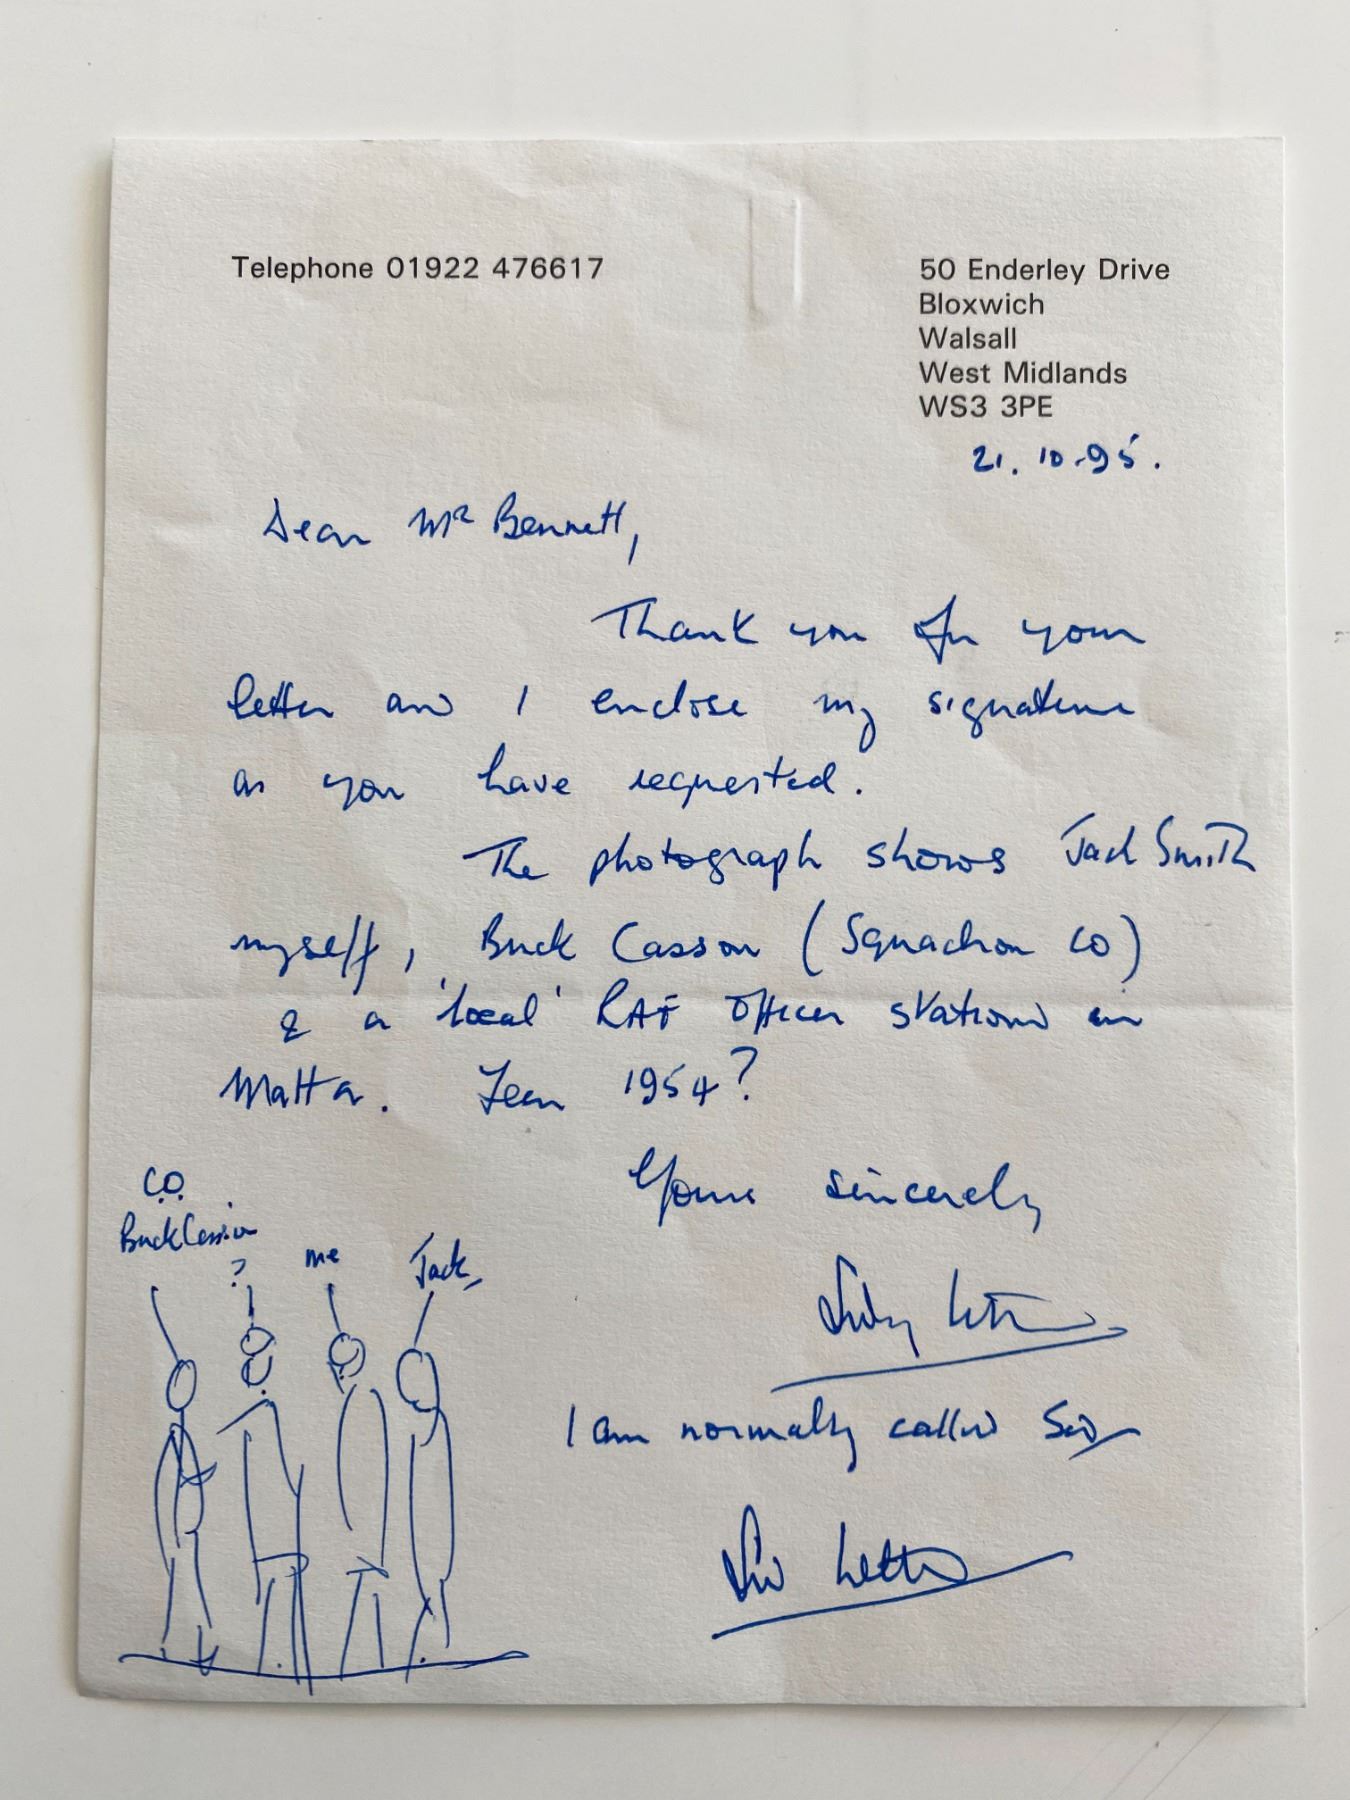 Telephone 01922 476617
50 Enderley Drive
Bloxwich
Walsall
West Midlands
WS3 3PE
21.10.95.
Dear Mr Bennett,
Thank you for your
letter and I enclose my signature
as you have requested.
The photograph shows Jack Smith
myself, Buck Casson (Squadron CO)
& a 'local' RAF Officer stationed in
Malta. Year 1954?
Yours sincerely
I am normally called Sid
Sid
C.O.
Buck Casson
?
me
Jack